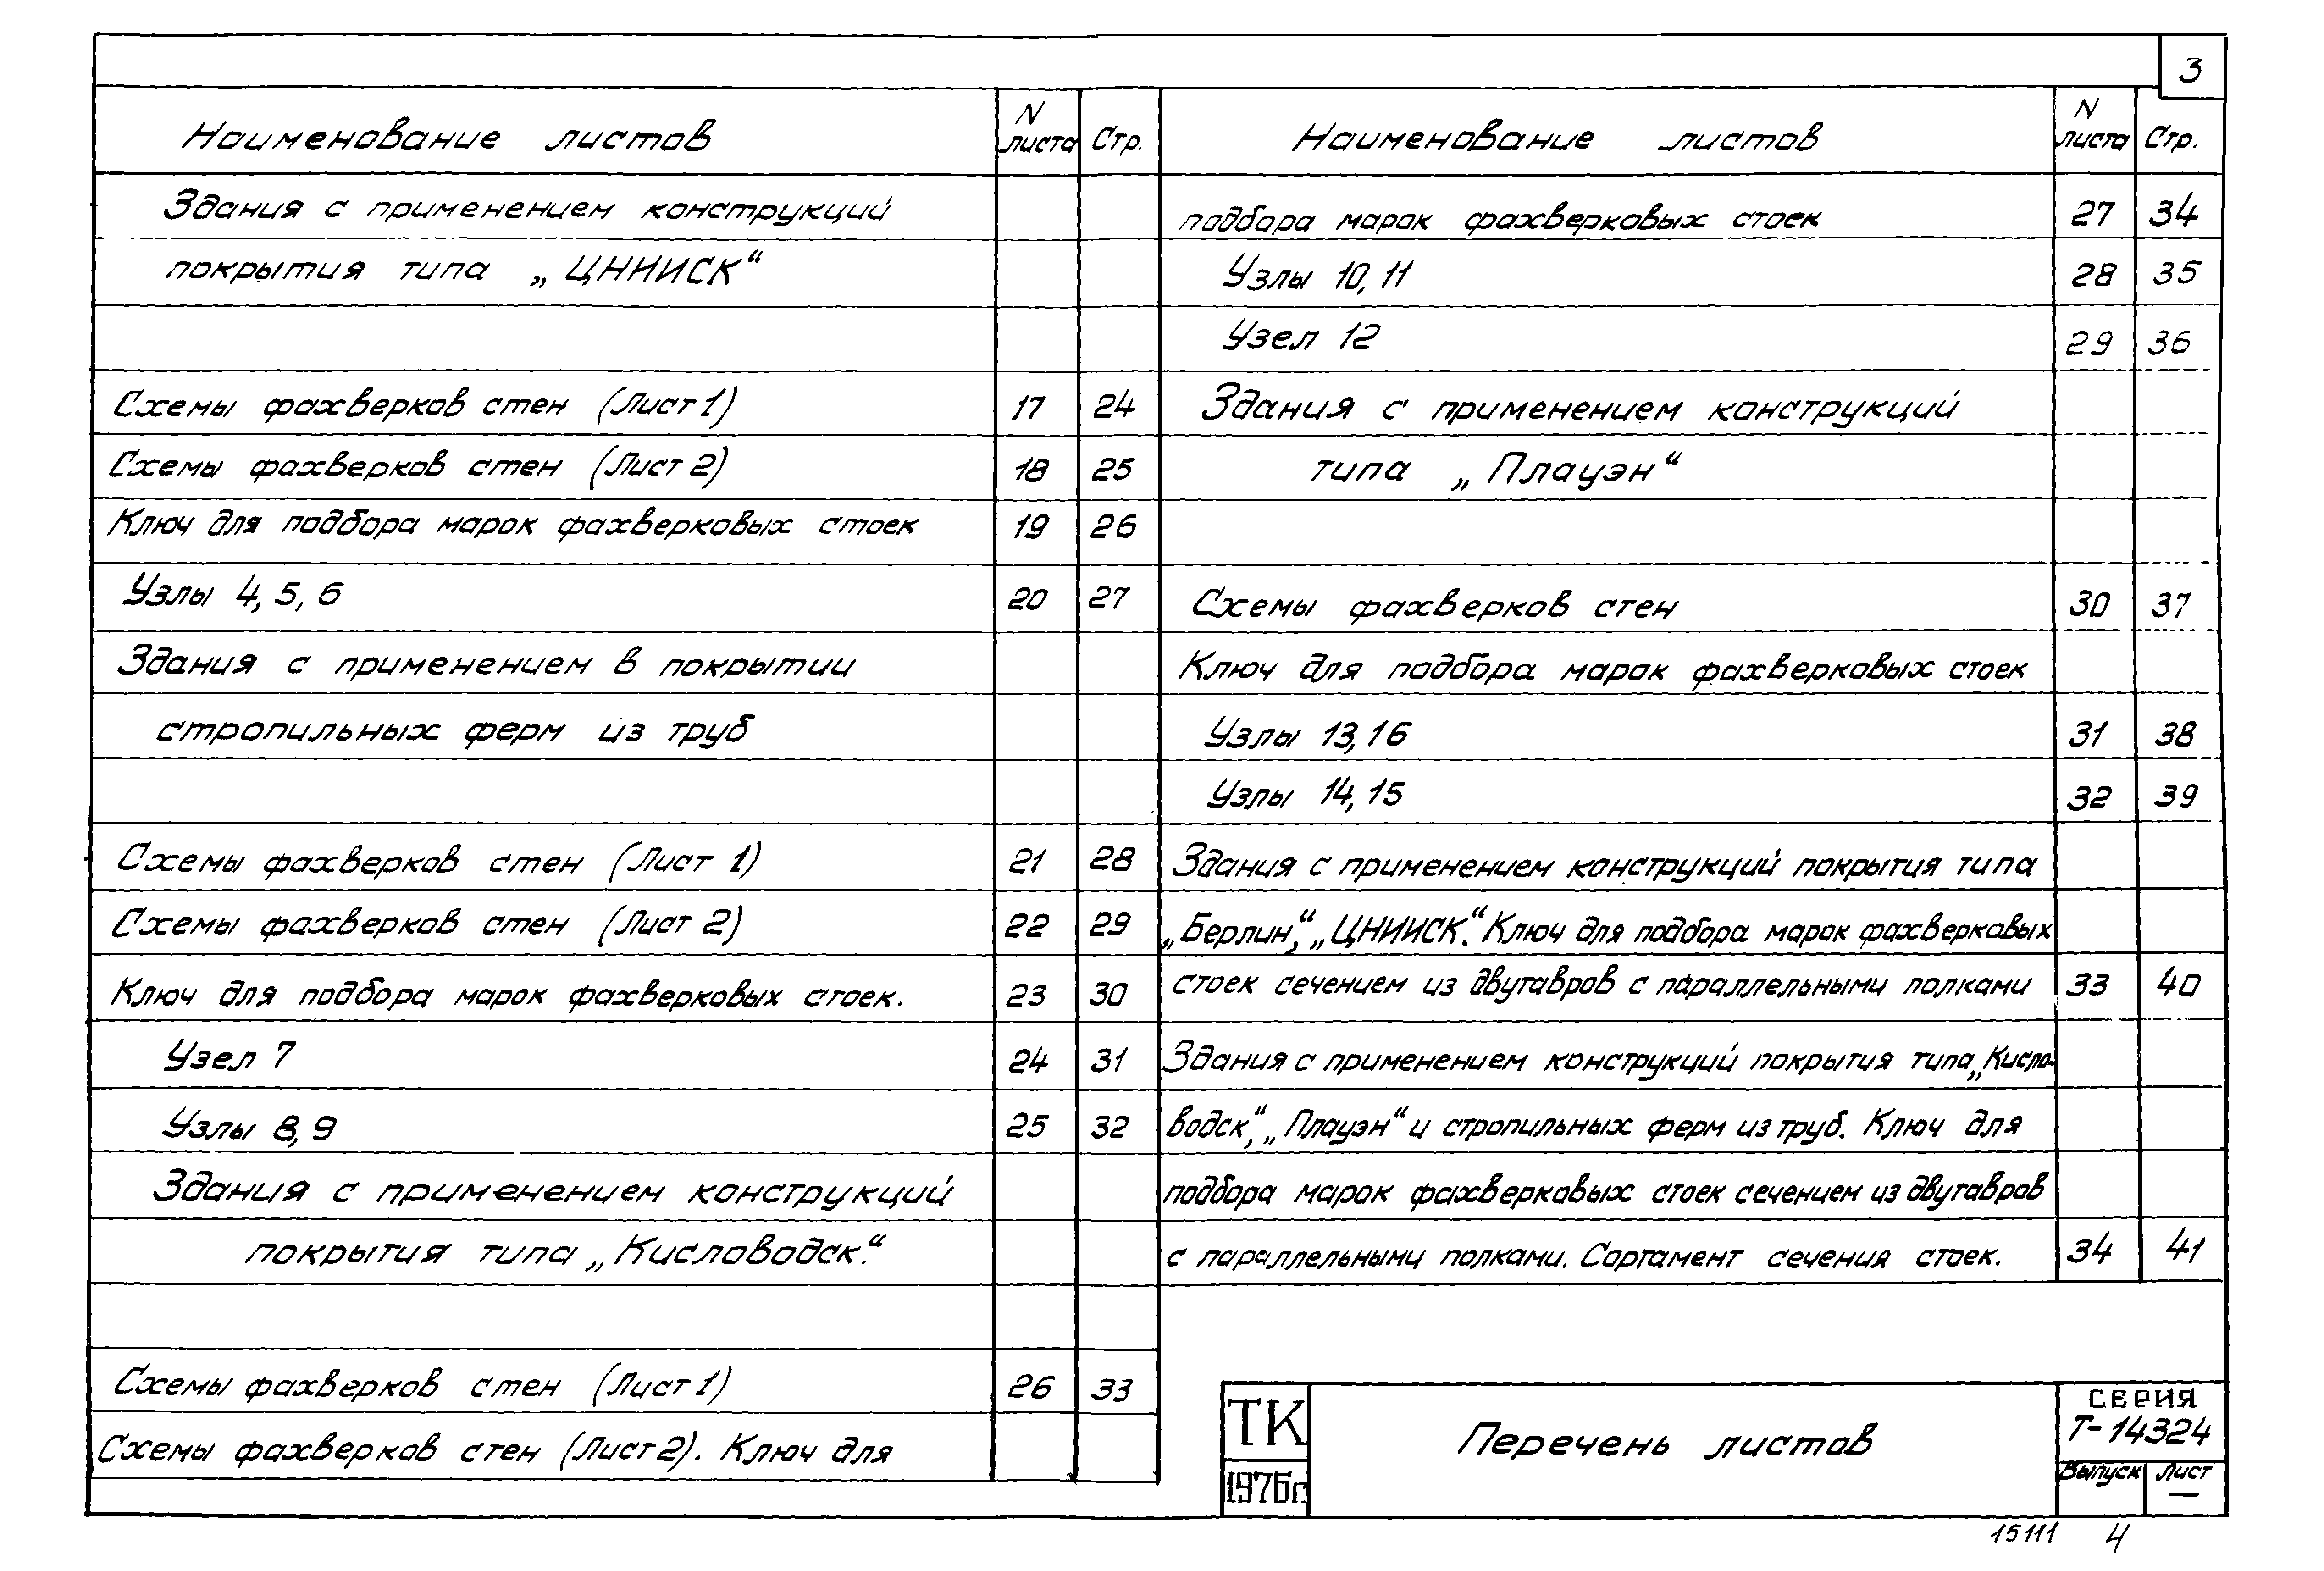 3
Наименование листов N листа Стр.
Здания с применением конструкций
покрытия типа „ЦНИИСК“
Схемы фахверков стен (Лист 1) 17 24
Схемы фахверков стен (Лист 2) 18 25
Ключ для подбора марок фахверковых стоек 19 26
Узлы 4, 5, 6 20 27
Здания с применением в покрытии
стропильных ферм из труб
Схемы фахверков стен (Лист 1) 21 28
Схемы фахверков стен (Лист 2) 22 29
Ключ для подбора марок фахверковых стоек. 23 30
Узел 7 24 31
Узлы 8, 9 25 32
Здания с применением конструкций
покрытия типа „Кисловодск.“
Схемы фахверков стен (Лист 1) 26 33
Схемы фахверков стен (Лист 2). Ключ для
Наименование листов N листа Стр.
подбора марок фахверковых стоек 27 34
Узлы 10, 11 28 35
Узел 12 29 36
Здания с применением конструкций
типа „Плауэн“
Схемы фахверков стен 30 37
Ключ для подбора марок фахверковых стоек
Узлы 13, 16 31 38
Узлы 14, 15 32 39
Здания с применением конструкций покрытия типа
„Берлин“, „ЦНИИСК“. Ключ для подбора марок фахверковых
стоек сечением из двутавров с параллельными полками 33 40
Здания с применением конструкций покрытия типа „Кисло-
водск“, „Плауэн“ и стропильных ферм из труб. Ключ для
подбора марок фахверковых стоек сечением из двутавров
с параллельными полками. Сортамент сечения стоек. 34 41
ТК
1976г
Перечень листов
СЕРИЯ
Т-14324
Выпуск Лист
—
15111 4